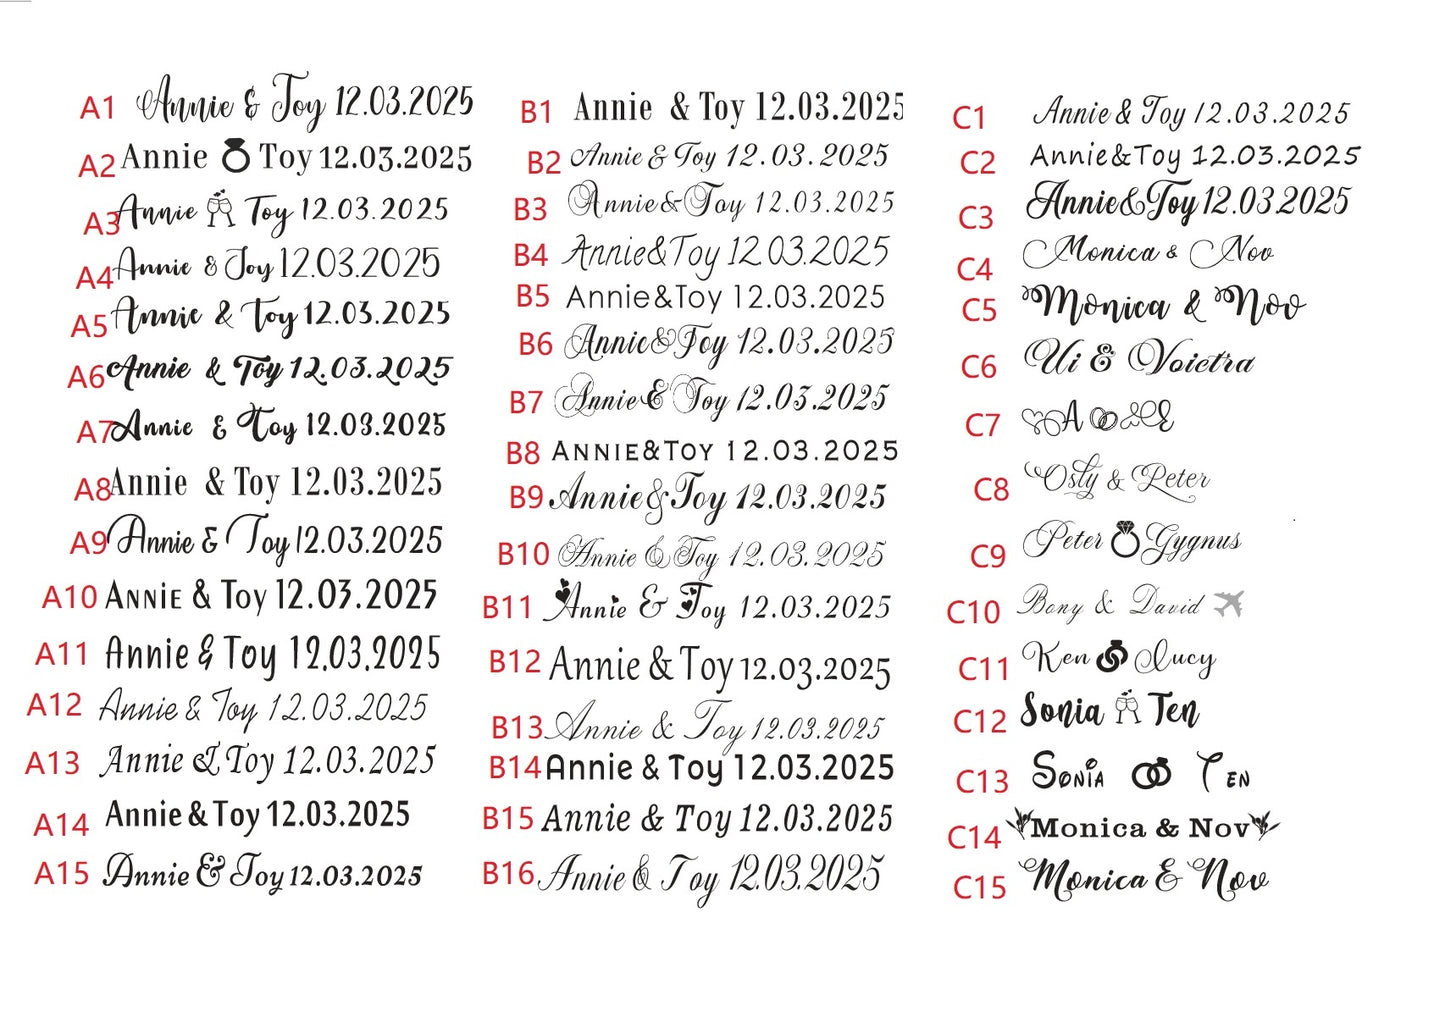 A1 Annie & Toy 12.03.2025
A2 Annie Toy 12.03.2025
A3 Annie Toy 12.03.2025
A4 Annie & Toy 12.03.2025
A5 Annie & Toy 12.03.2025
A6 Annie & Toy 12.03.2025
A7 Annie & Toy 12.03.2025
A8 Annie & Toy 12.03.2025
A9 Annie & Toy 12.03.2025
A10 ANNIE & Toy 12.03.2025
A11 Annie & Toy 12.03.2025
A12 Annie & Toy 12.03.2025
A13 Annie & Toy 12.03.2025
A14 Annie & Toy 12.03.2025
A15 Annie & Toy 12.03.2025
B1 Annie & Toy 12.03.2025
B2 Annie & Toy 12.03.2025
B3 Annie&Toy 12.03.2025
B4 Annie&Toy 12.03.2025
B5 Annie&Toy 12.03.2025
B6 Annie&Toy 12.03.2025
B7 Annie&Toy 12.03.2025
B8 ANNIE&TOY 12.03.2025
B9 Annie&Toy 12.03.2025
B10 Annie &Toy 12.03.2025
B11 Annie & Toy 12.03.2025
B12 Annie & Toy 12.03.2025
B13 Annie & Toy 12.03.2025
B14 Annie & Toy 12.03.2025
B15 Annie & Toy 12.03.2025
B16 Annie & Toy 12.03.2025
C1 Annie & Toy 12.03.2025
C2 Annie&Toy 12.03.2025
C3 Annie&Toy 12.03.2025
C4 Monica & Nov
C5 Monica & Nov
C6 Ui & Voietra
C7 A E
C8 Osly & Peter
C9 Peter Gygnus
C10 Bony & David
C11 Ken Lucy
C12 Sonia Ten
C13 SONIA TEN
C14 Monica & Nov
C15 Monica & Nov